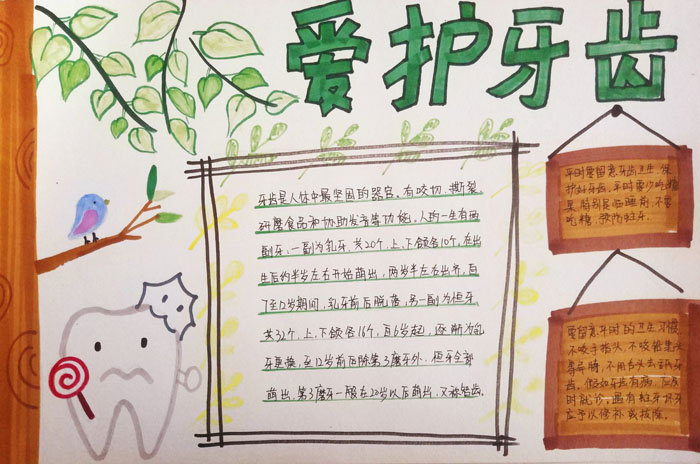 爱护牙齿
牙齿是人体中最坚固的器官。有咬切、撕裂、
研磨食品和协助发音等功能，人的一生有两
副牙，一副为乳牙，共20个，上、下颌各10个，在出
生后约半岁左右开始萌出，两岁半左右出齐，后
于12岁期间，乳牙前后脱落，另一副为恒牙，
共32个，上、下颌各16个，自6岁起，逐渐为乳
牙更换，至12岁前后除第3磨牙外，恒牙全部
萌出，第3磨牙一般在20岁以后萌出，又称智齿。
平时要留意牙齿卫生，保
护好牙齿，平时要少吃糖
果，特别是临睡前，不要
吃糖，预防蛀牙。
要留意平时的卫生习惯，
不咬手指头，不咬铅笔头
等异物，不用舌头去舔牙
齿，假如牙齿有病，应及
时就诊，患有蛀牙、坏牙
应予以修补或拔除。